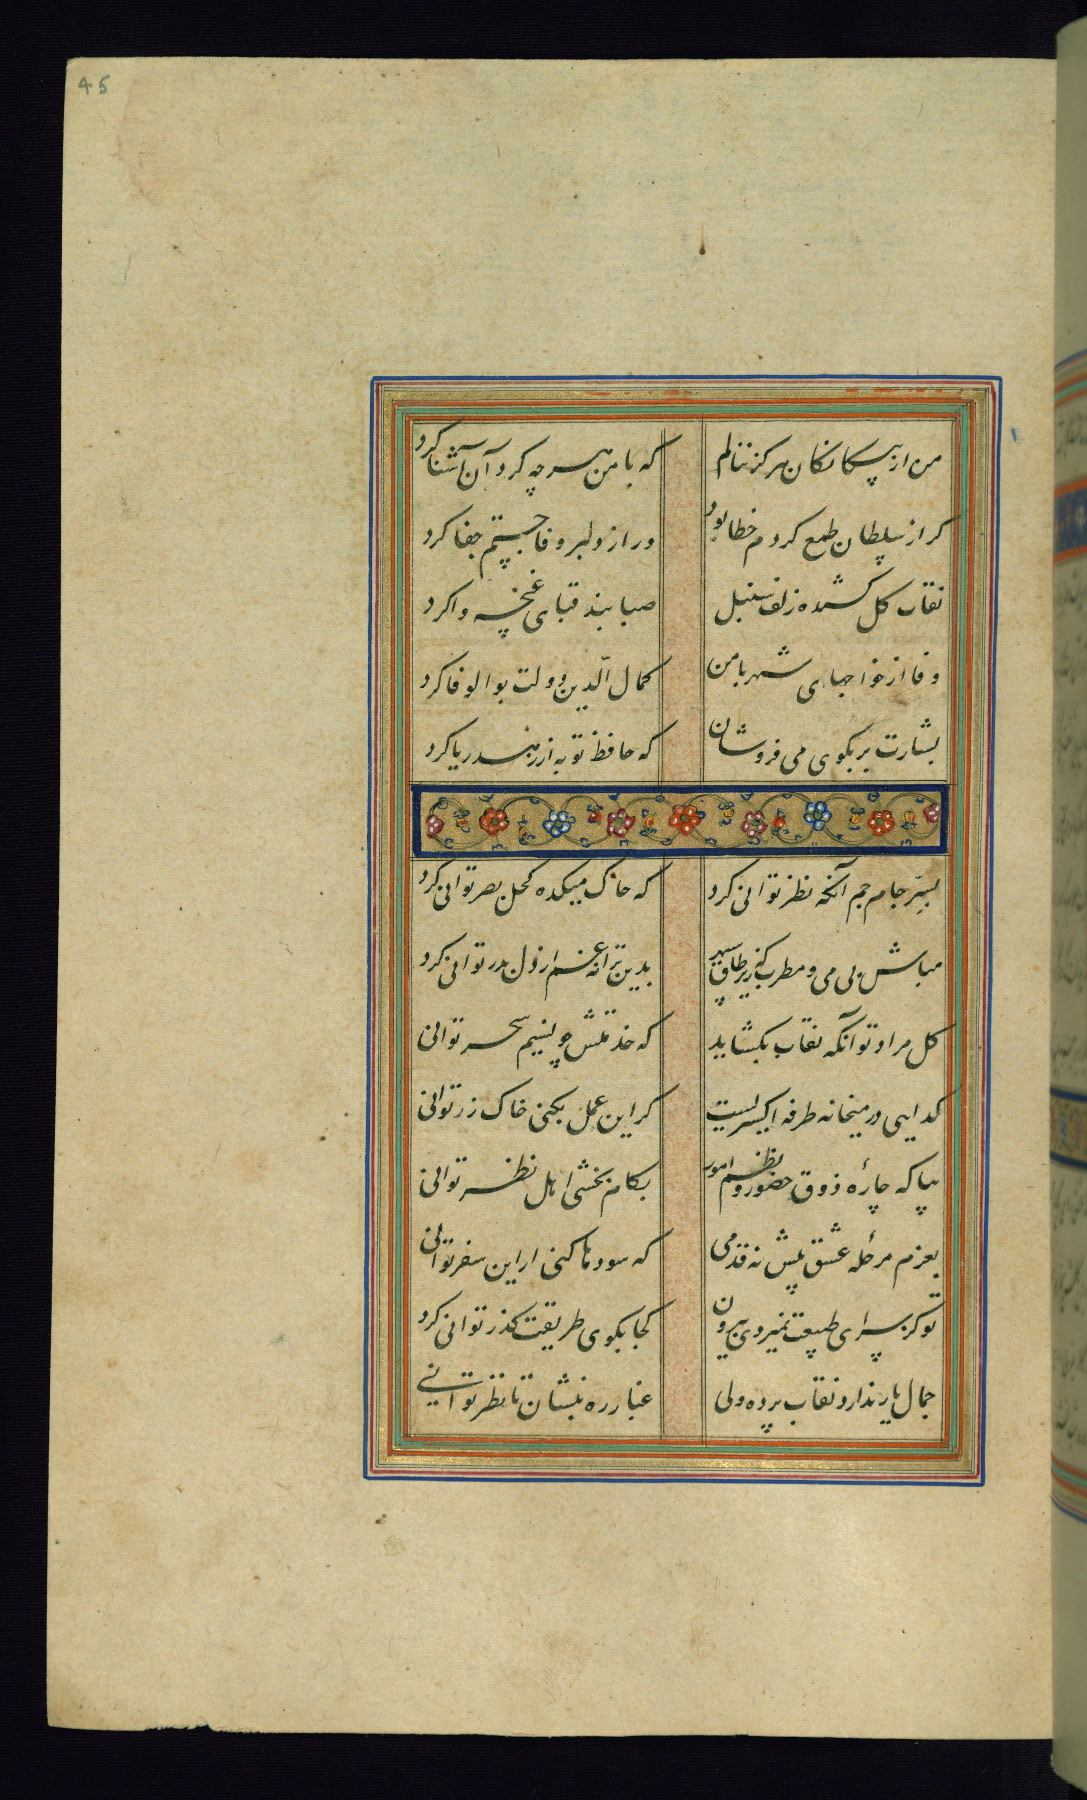 45
من از بیکانکان هرکز ننالم که با من هرچه کرد آن آشنا کرد
کر از سلطان طمع کردم خطا بود ور از دلبر وفا جستم جفا کرد
نقاب کل کشید و زلف سنبل صبا بند قبای غنچه وا کرد
وفا از خواجهای شهر با من کمال الدین و دولت بوالوفا کرد
بشارت بر بکوی می فروشان که حافظ توبه از زهد ریا کرد
بسر جام جم آنکه نظر توانی کرد که خاک میکده کحل بصر توانی کرد
مباش بی می و مطرب که زیر طاق سپهر بدین ترانه غم از دل بدر توانی کرد
کل مراد تو آنکه نقاب بکشاید که خدمتش چو نسیم سحر توانی
کدایی در میخانه طرفه اکسیریست کر این عمل بکنی خاک زر توانی
بیا که چارهٔ ذوق حضور و نظم امور بکام بخشی اهل نظر توانی
بعزم مرحلهٔ عشق پیش نه قدمی که سودها کنی ار این سفر توانی
تو کز سرای طبیعت نمیروی بیرون کجا بکوی طریقت کذر توانی کرد
جمال یار ندارد نقاب پرده ولی غبار ره بنشان تا نظر توانی